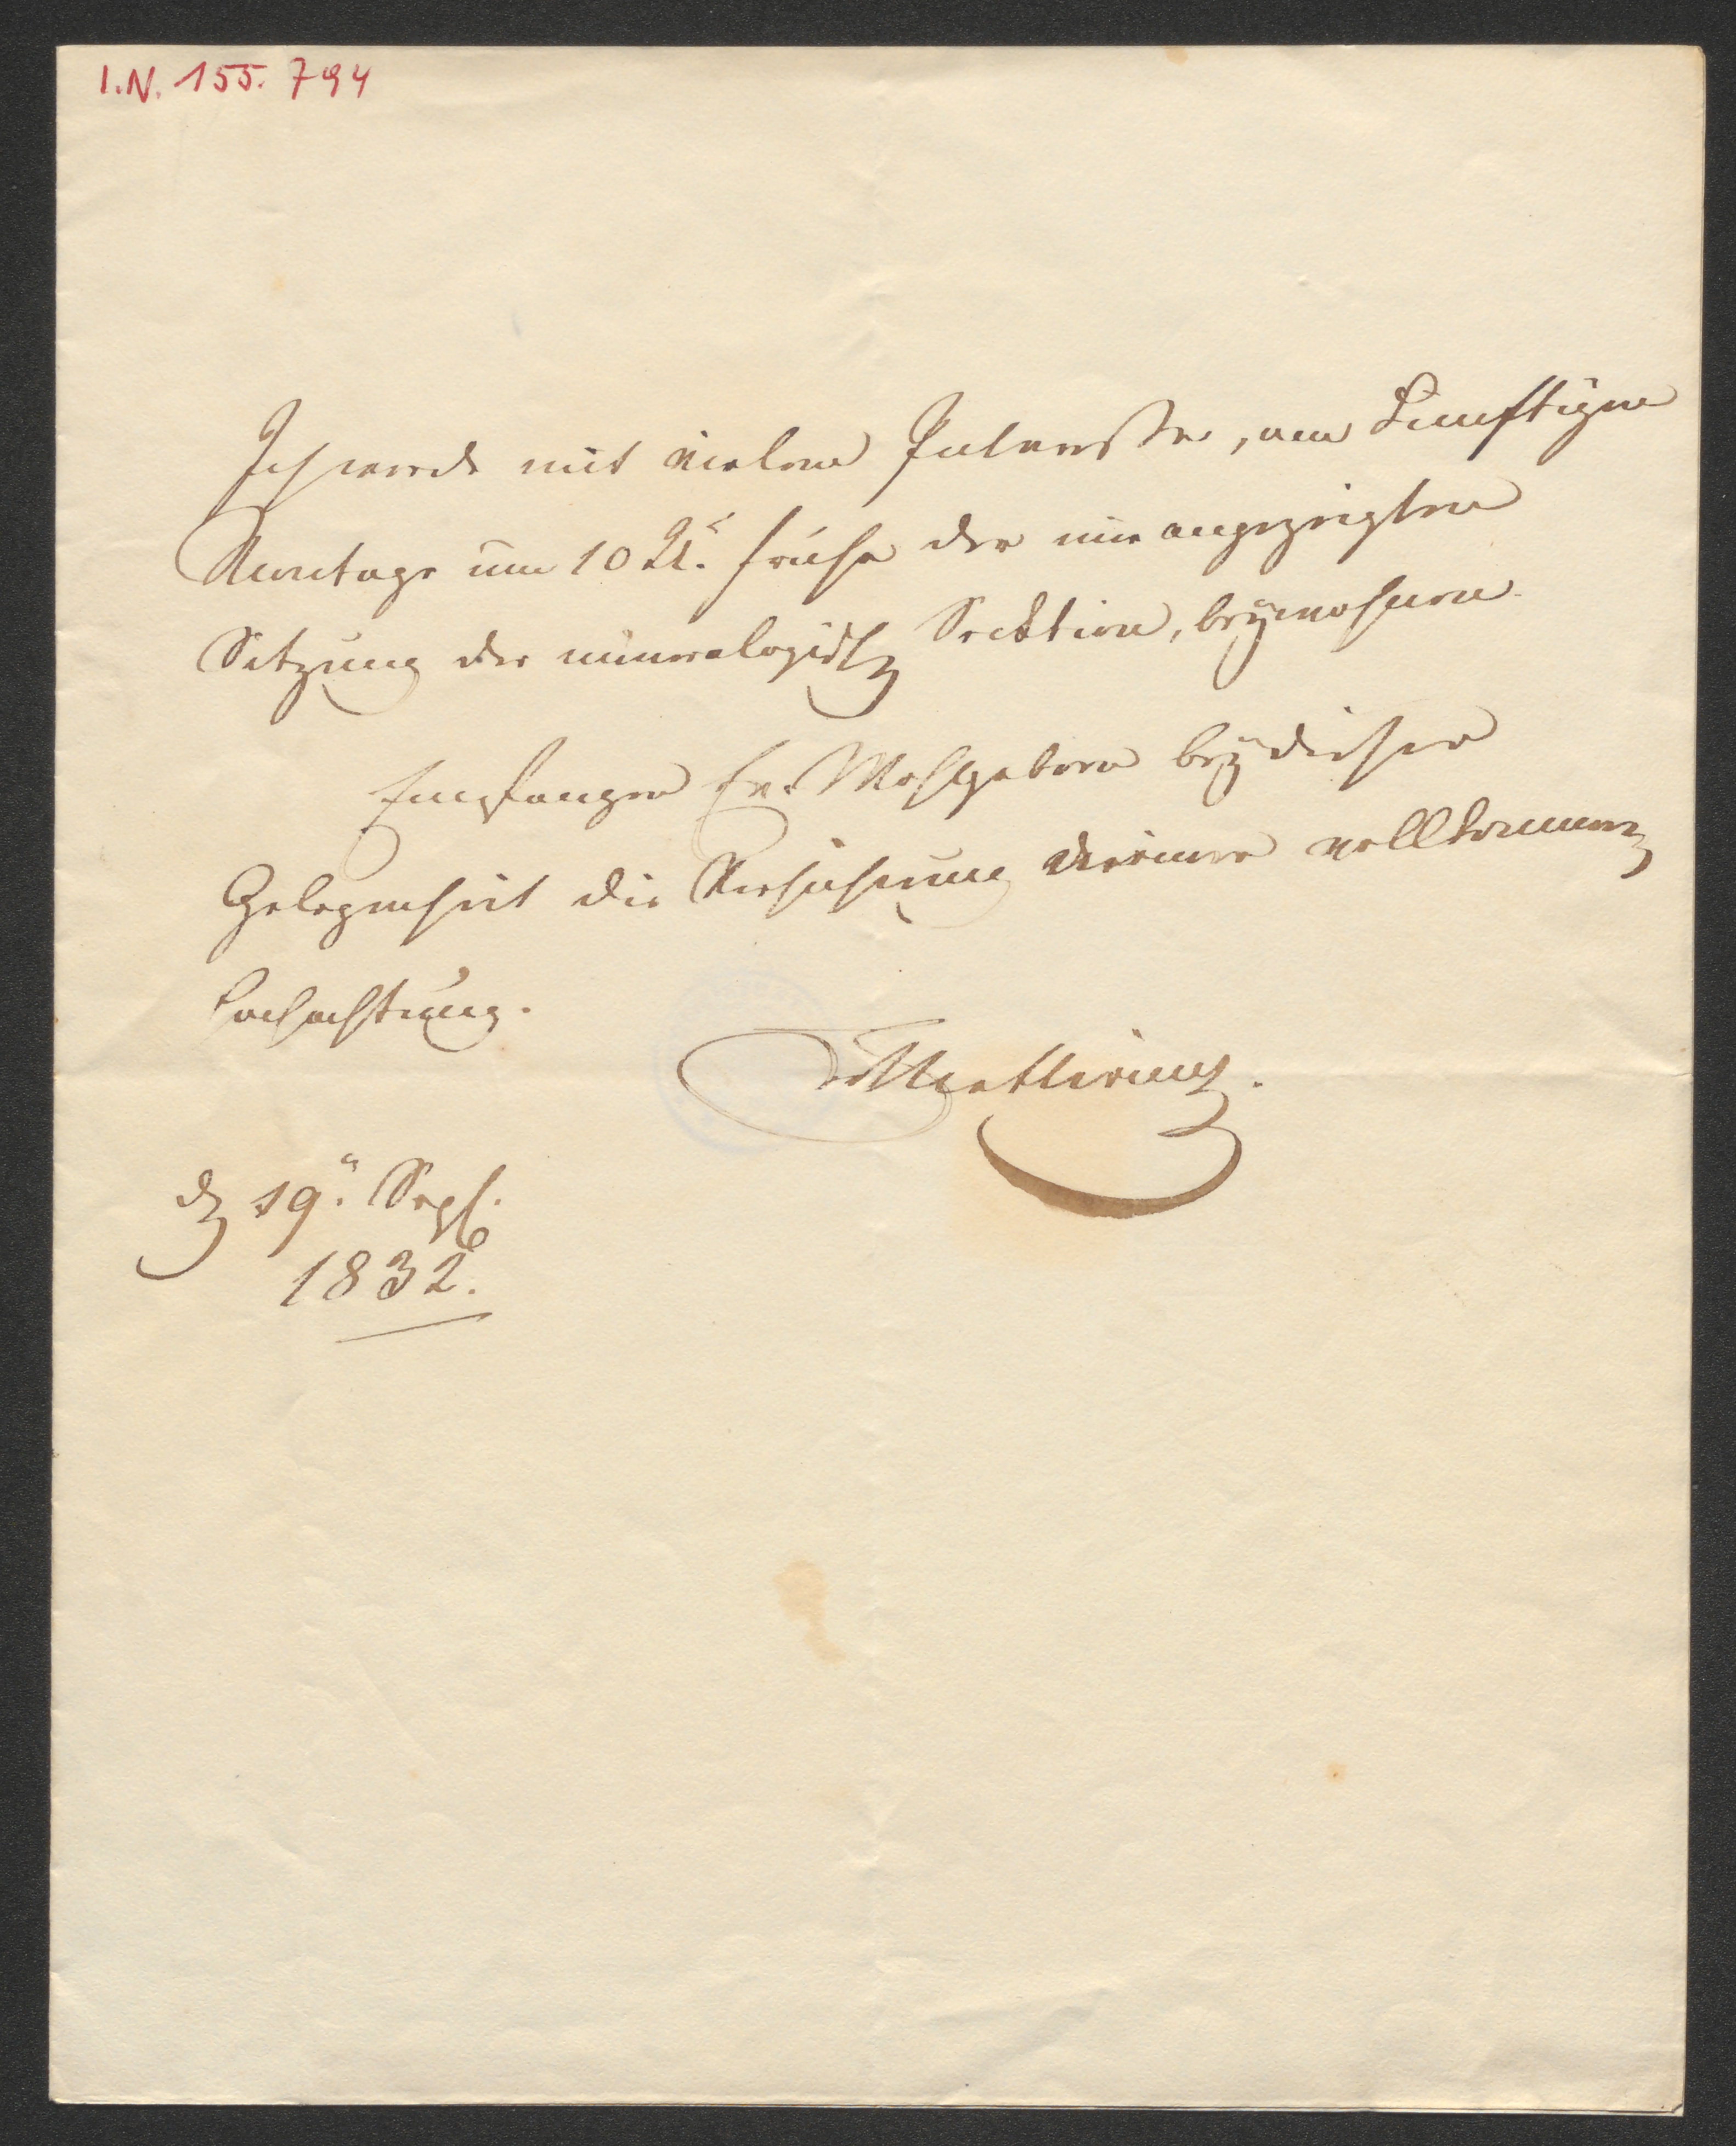 I.N. 155.794
Ich werde mit vielem Interesse, am künftigen
Montage um 10 U. frühe der mir angezeigten
Sitzung der mineralogisch Secktion, beywohnen.
Empfangen Er. Wohlgeborn bey dieser
Gelegenheit die Versicherung meiner vollkommen
Hochachtung.
Metternich.
d 19. Sept.
1832.